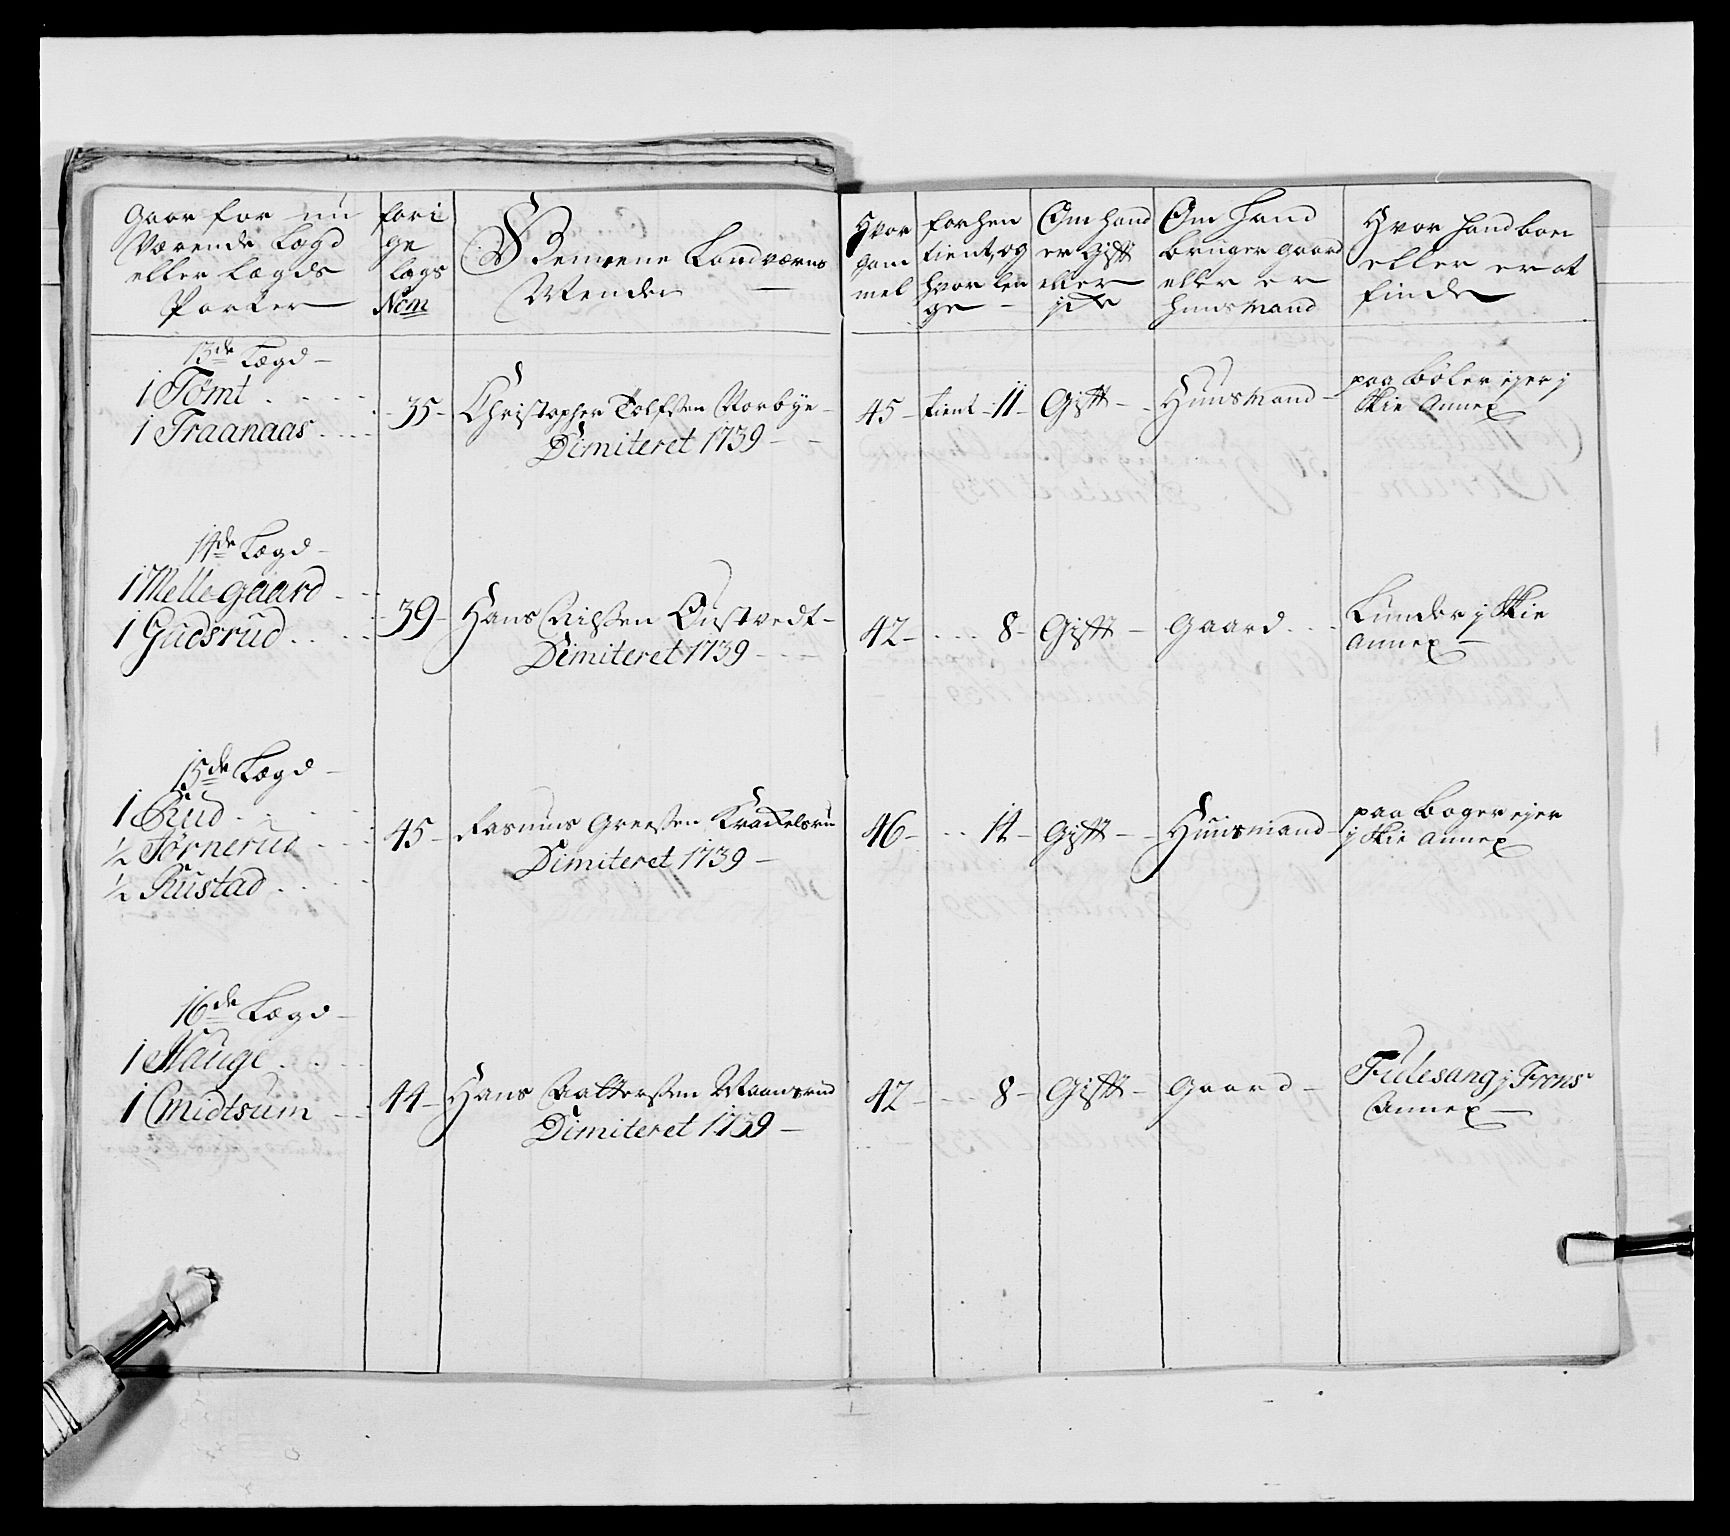 Gaar for nu
Værende Lægd
eller Lægds
Parter
fori
ge
Lags
Nom
Remtene Landværns
Mender
Hvor
gam
mel
forhen
tient, og
hvor len
ge
Om hand
er Gift
eller
ey
Om Hand
bruger gaard
eller er
huusmand
Hvor hand boer
eller er at
finde
13de Lægd
1 Tømt
1 Traanaas
35
Christopher Tolfsen Norbye
Dimiteret 1739
45
tient 11
Gift
Huusmand
paa Bøler ejer j
Skie Annex
14de Lægd
1 Mellegaard
1 Gudsrud
39
Hans Nilsen Øustvedt
Dimiteret 1739
42
8
Gift
Gaard
Kunder j Skie
Annex
15de Lægd
1 Rud
½ Tornerud
½ Rustad
45
Rasmus Greesen Krachelsru
Dimiteret 1739
46
14
Gift
Huusmand
paa Boger ejer
j Skie Annex
16de Lægd
1 Hauge
1 Smidtsum
44
Hans Waltersen Maansrud
Dimiteret 1739
42
8
Gift
Gaard
Fulesang j Frons
Annex